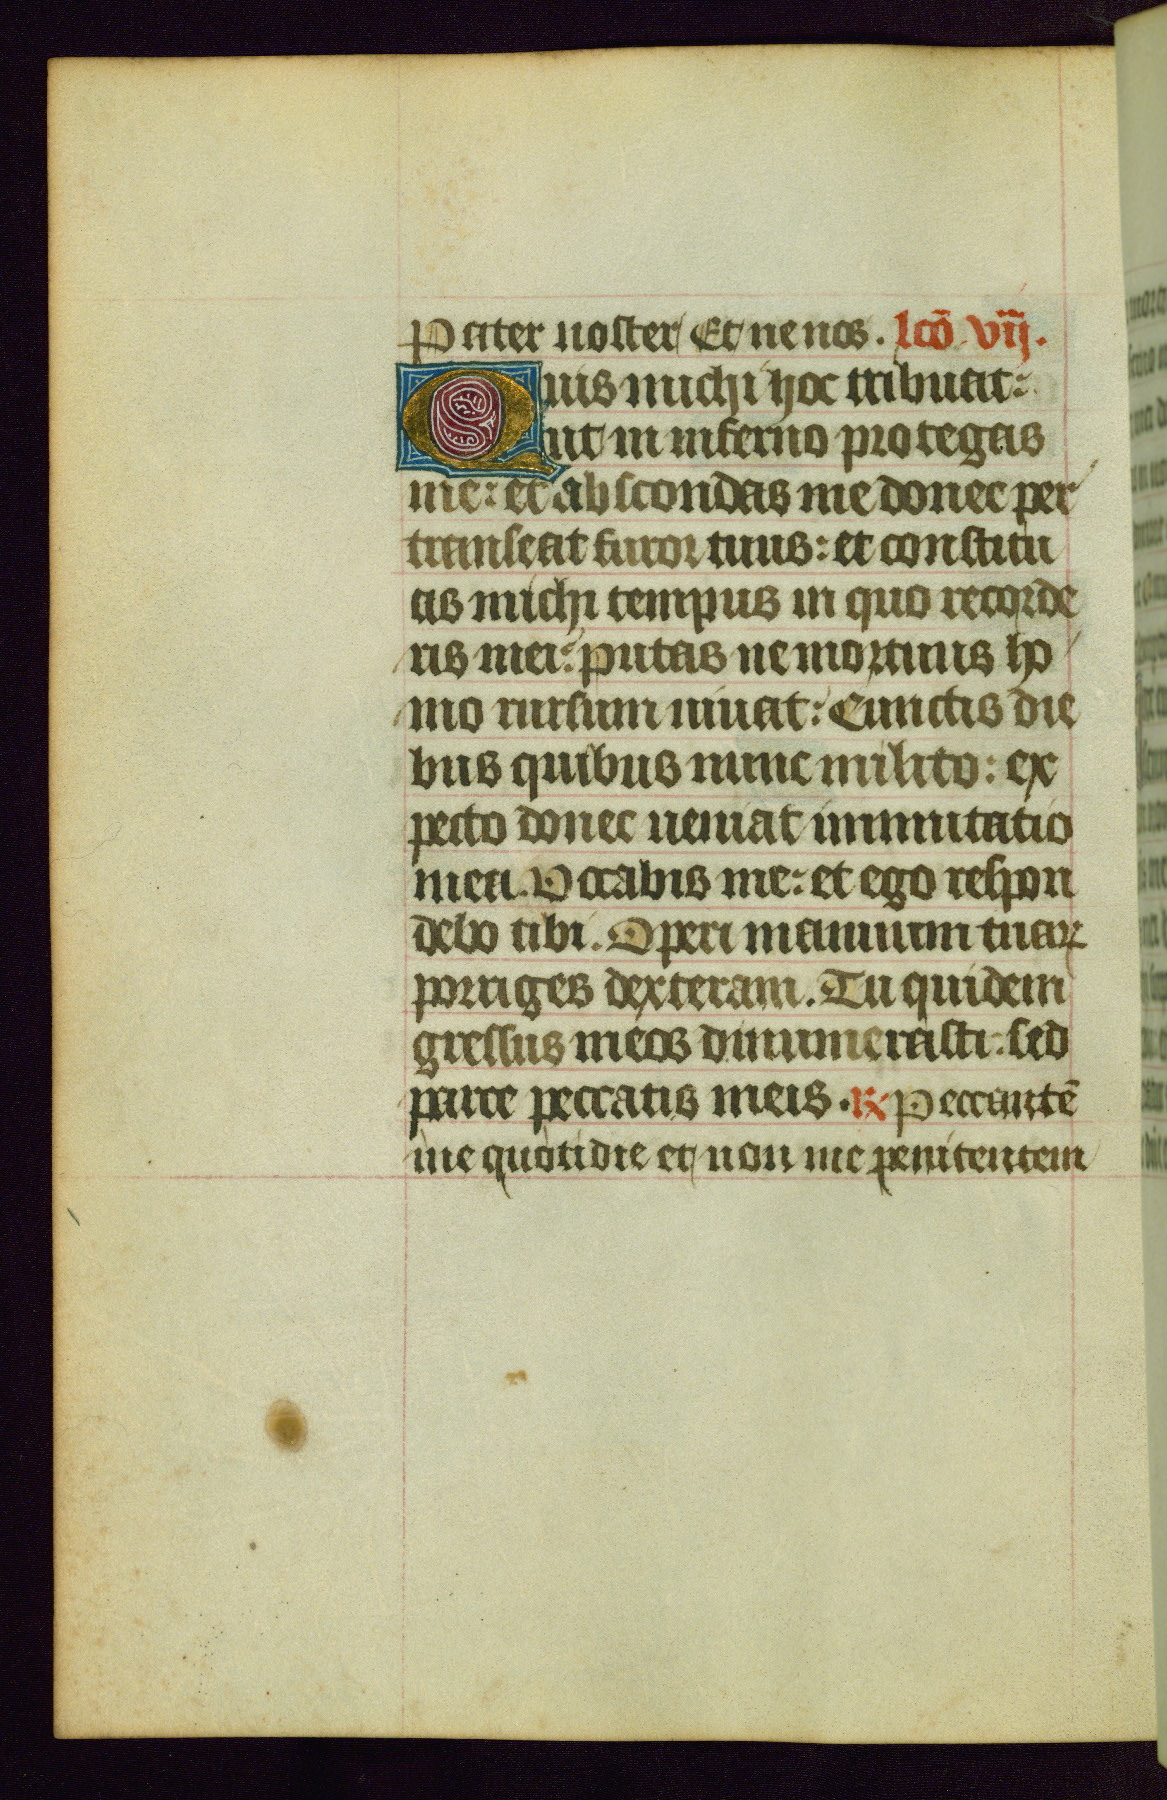 Pater noster Et ne nos. lcō vij.
Quis michi hoc tribuat:
ut in inferno protegas
me: et abscondas me donec per
transeat furor tuus: et constitu
as michi tempus in quo recorde
ris mei: putas ne mortuus ho
mo rursum uiuat: Cunctis die
bus quibus nunc milito: ex
pecto donec ueniat immutatio
mea. Vocabis me: et ego respon
debo tibi. Operi manuum tuaꝝ
porriges dexteram. Tu quidem
gressus meos dinumerasti: sed
parce peccatis meis. ℟ Peccantē
me quotidie et non me penitentem